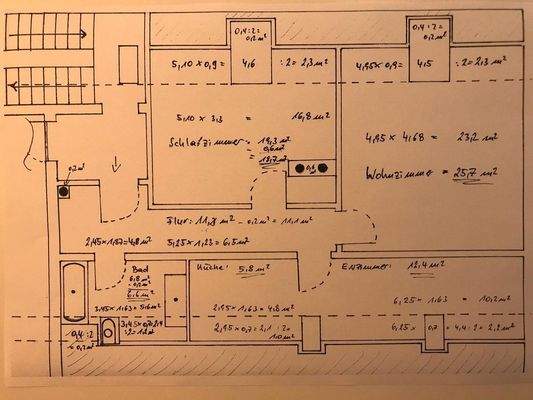 0.4:2=
0.2 m²
0.4:2=
0.2 m²
5,10 x 0,9 = 4,6 :2= 2,3 m²
4,95 x 0,9 = 4,5 :2= 2,3 m²
5,10 x 3,3 = 16,8 m²
Schlafzimmer = 19,3 m²
- 0,6 m²
18,7 m²
4,95 x 4,68 = 23,2 m²
Wohnzimmer = 25,7 m²
0,2 m²
0,6
Flur: 11,3 m² - 0,2 m² = 11,1 m²
2,45 x 1,97 = 4,8 m²
5,25 x 1,23 = 6,5 m²
Bad
6,8 m²
- 0,2 m²
6,6 m²
3,45 x 1,63 = 5,6 m²
3,45 x 0,7 = 2,4
:2 = 1,2 m²
0,4 :2
= 0,2 m²
Küche: 5,8 m²
2,95 x 1,63 = 4,8 m²
2,95 x 0,7 = 2,1 :2=
1,0 m²
Esszimmer: 12,4 m²
6,25 x 1,63 = 10,2 m²
6,25 x 0,7 = 4,4 :2 = 2,2 m²